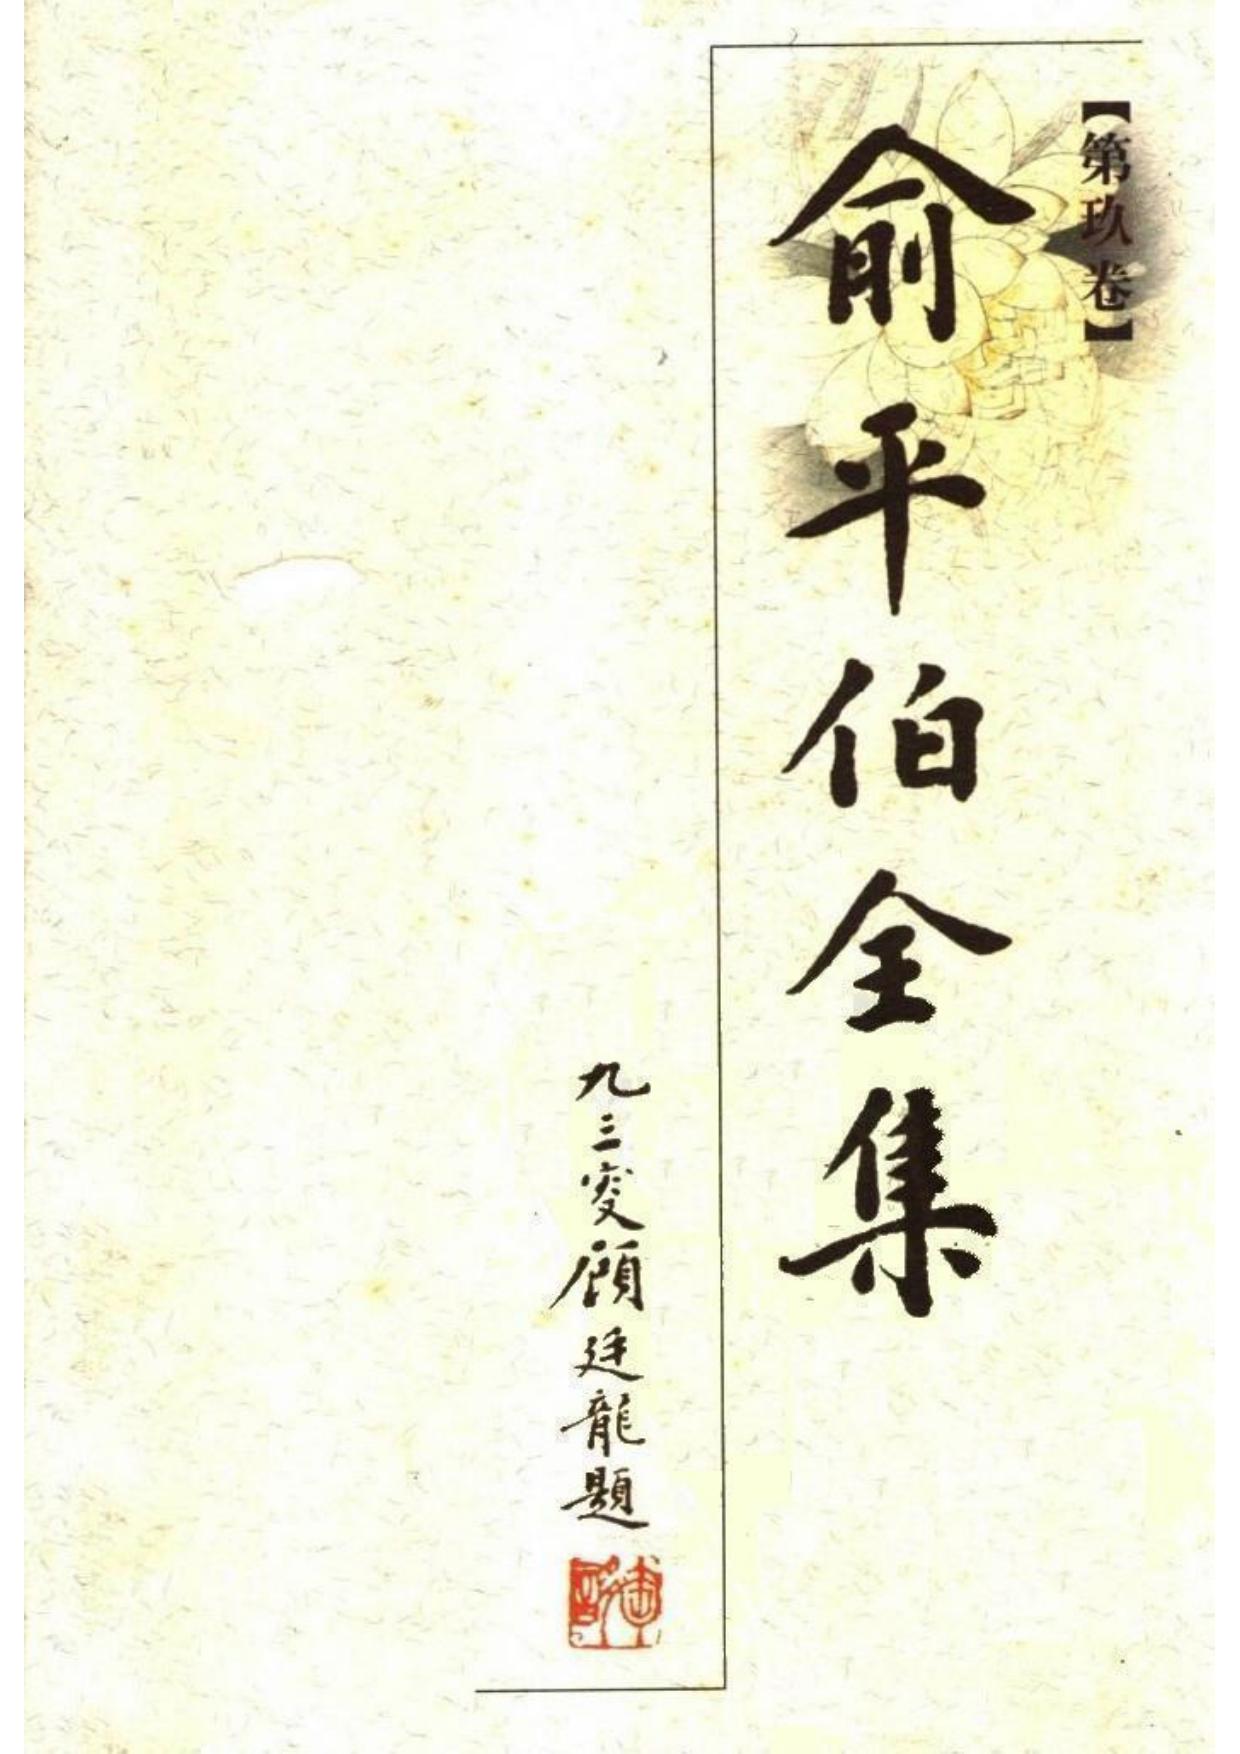 【第玖卷】
俞平伯全集
九三叟顾廷龍題